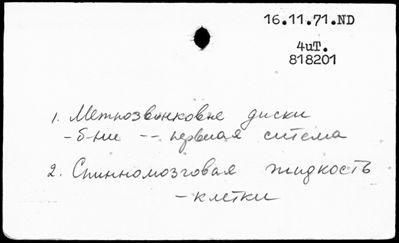 16.11.71.ND
4иТ.
818201
1. Межпозвонковые диски
-б-ни -- нервная система
2. Спинномозговая жидкость
-клетки